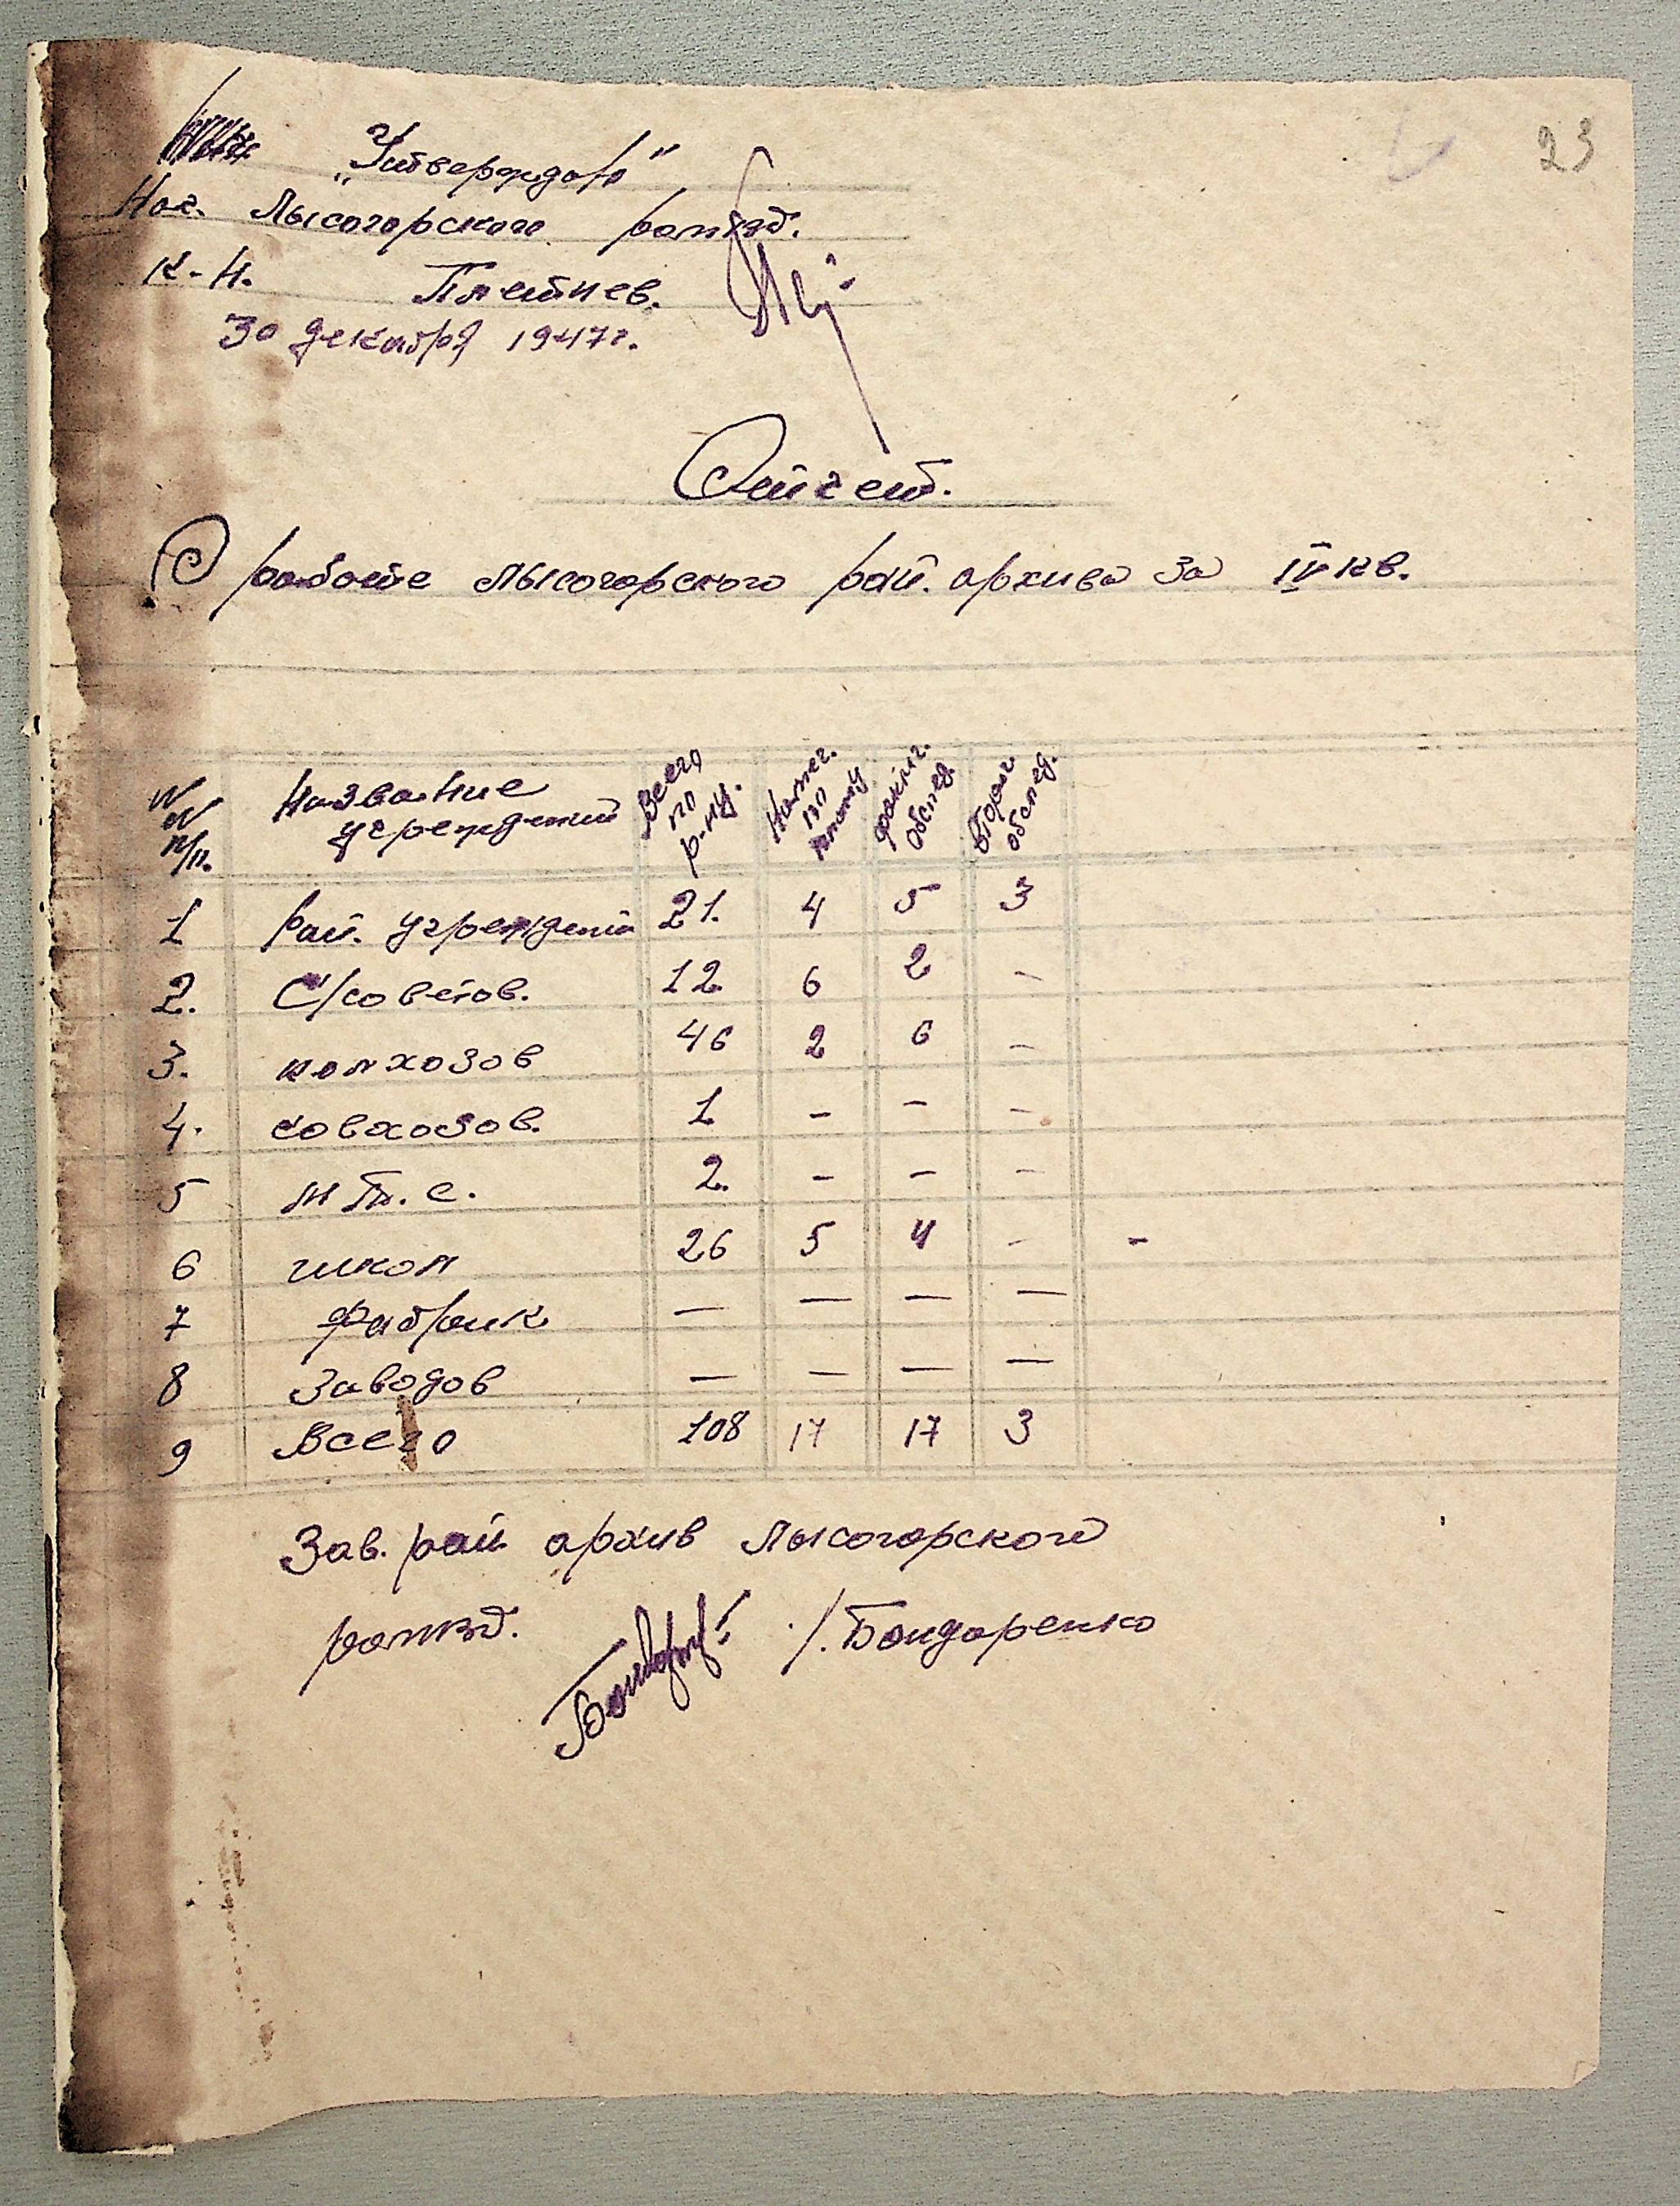 23
„Утверждаю"
Нач. Лысогорского ромвд.
К-н. Плетнев.
30 декабря 1947г.
Отчет.
О работе Лысогорского рай. архива за IV кв.
№№ п/п. Название учреждений Всего по р-ну. Намеч. по плану фактич. обслед. Вторич. обслед.
1 Рай. учреждений 21. 4 5 3
2. С/советов. 12 6 2 -
3. колхозов 46 2 6 -
4. совхозов. 1 - - -
5 м.т.с. 2. - - -
6 школ 26 5 4 - -
7 фабрик — — — —
8 заводов — — — —
9 Всего 108 17 17 3
Зав. рай архив Лысогорского
ромвд. /. Бондаренко